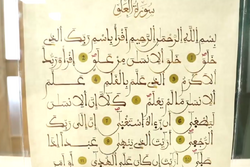 سورة العلق
بسم الله الرحمن الرحيم اقرأ باسم ربك الذي
خلق خلق الانسن من علق اقرأ وربك
الأكرم الذي علم بالقلم علم
الانسن ما لم يعلم كلا إن الانسن
ليطغى أن رءاه استغنى إن إلى ربك
الرجعى أرءيت الذي ينهى
عبدا إذا صلى أرءيت إن كان على الهدى أو أمر